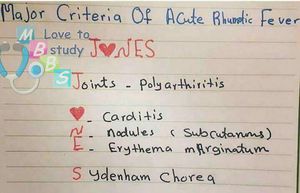 Major Criteria Of Acute Rhumatic Fever
Love to
MBBS study JONES
Joints - Polyarthiritis
♥ - Carditis
N - nodules (Subcutanus)
E - Erythema mArginatum
S ydenham Chorea